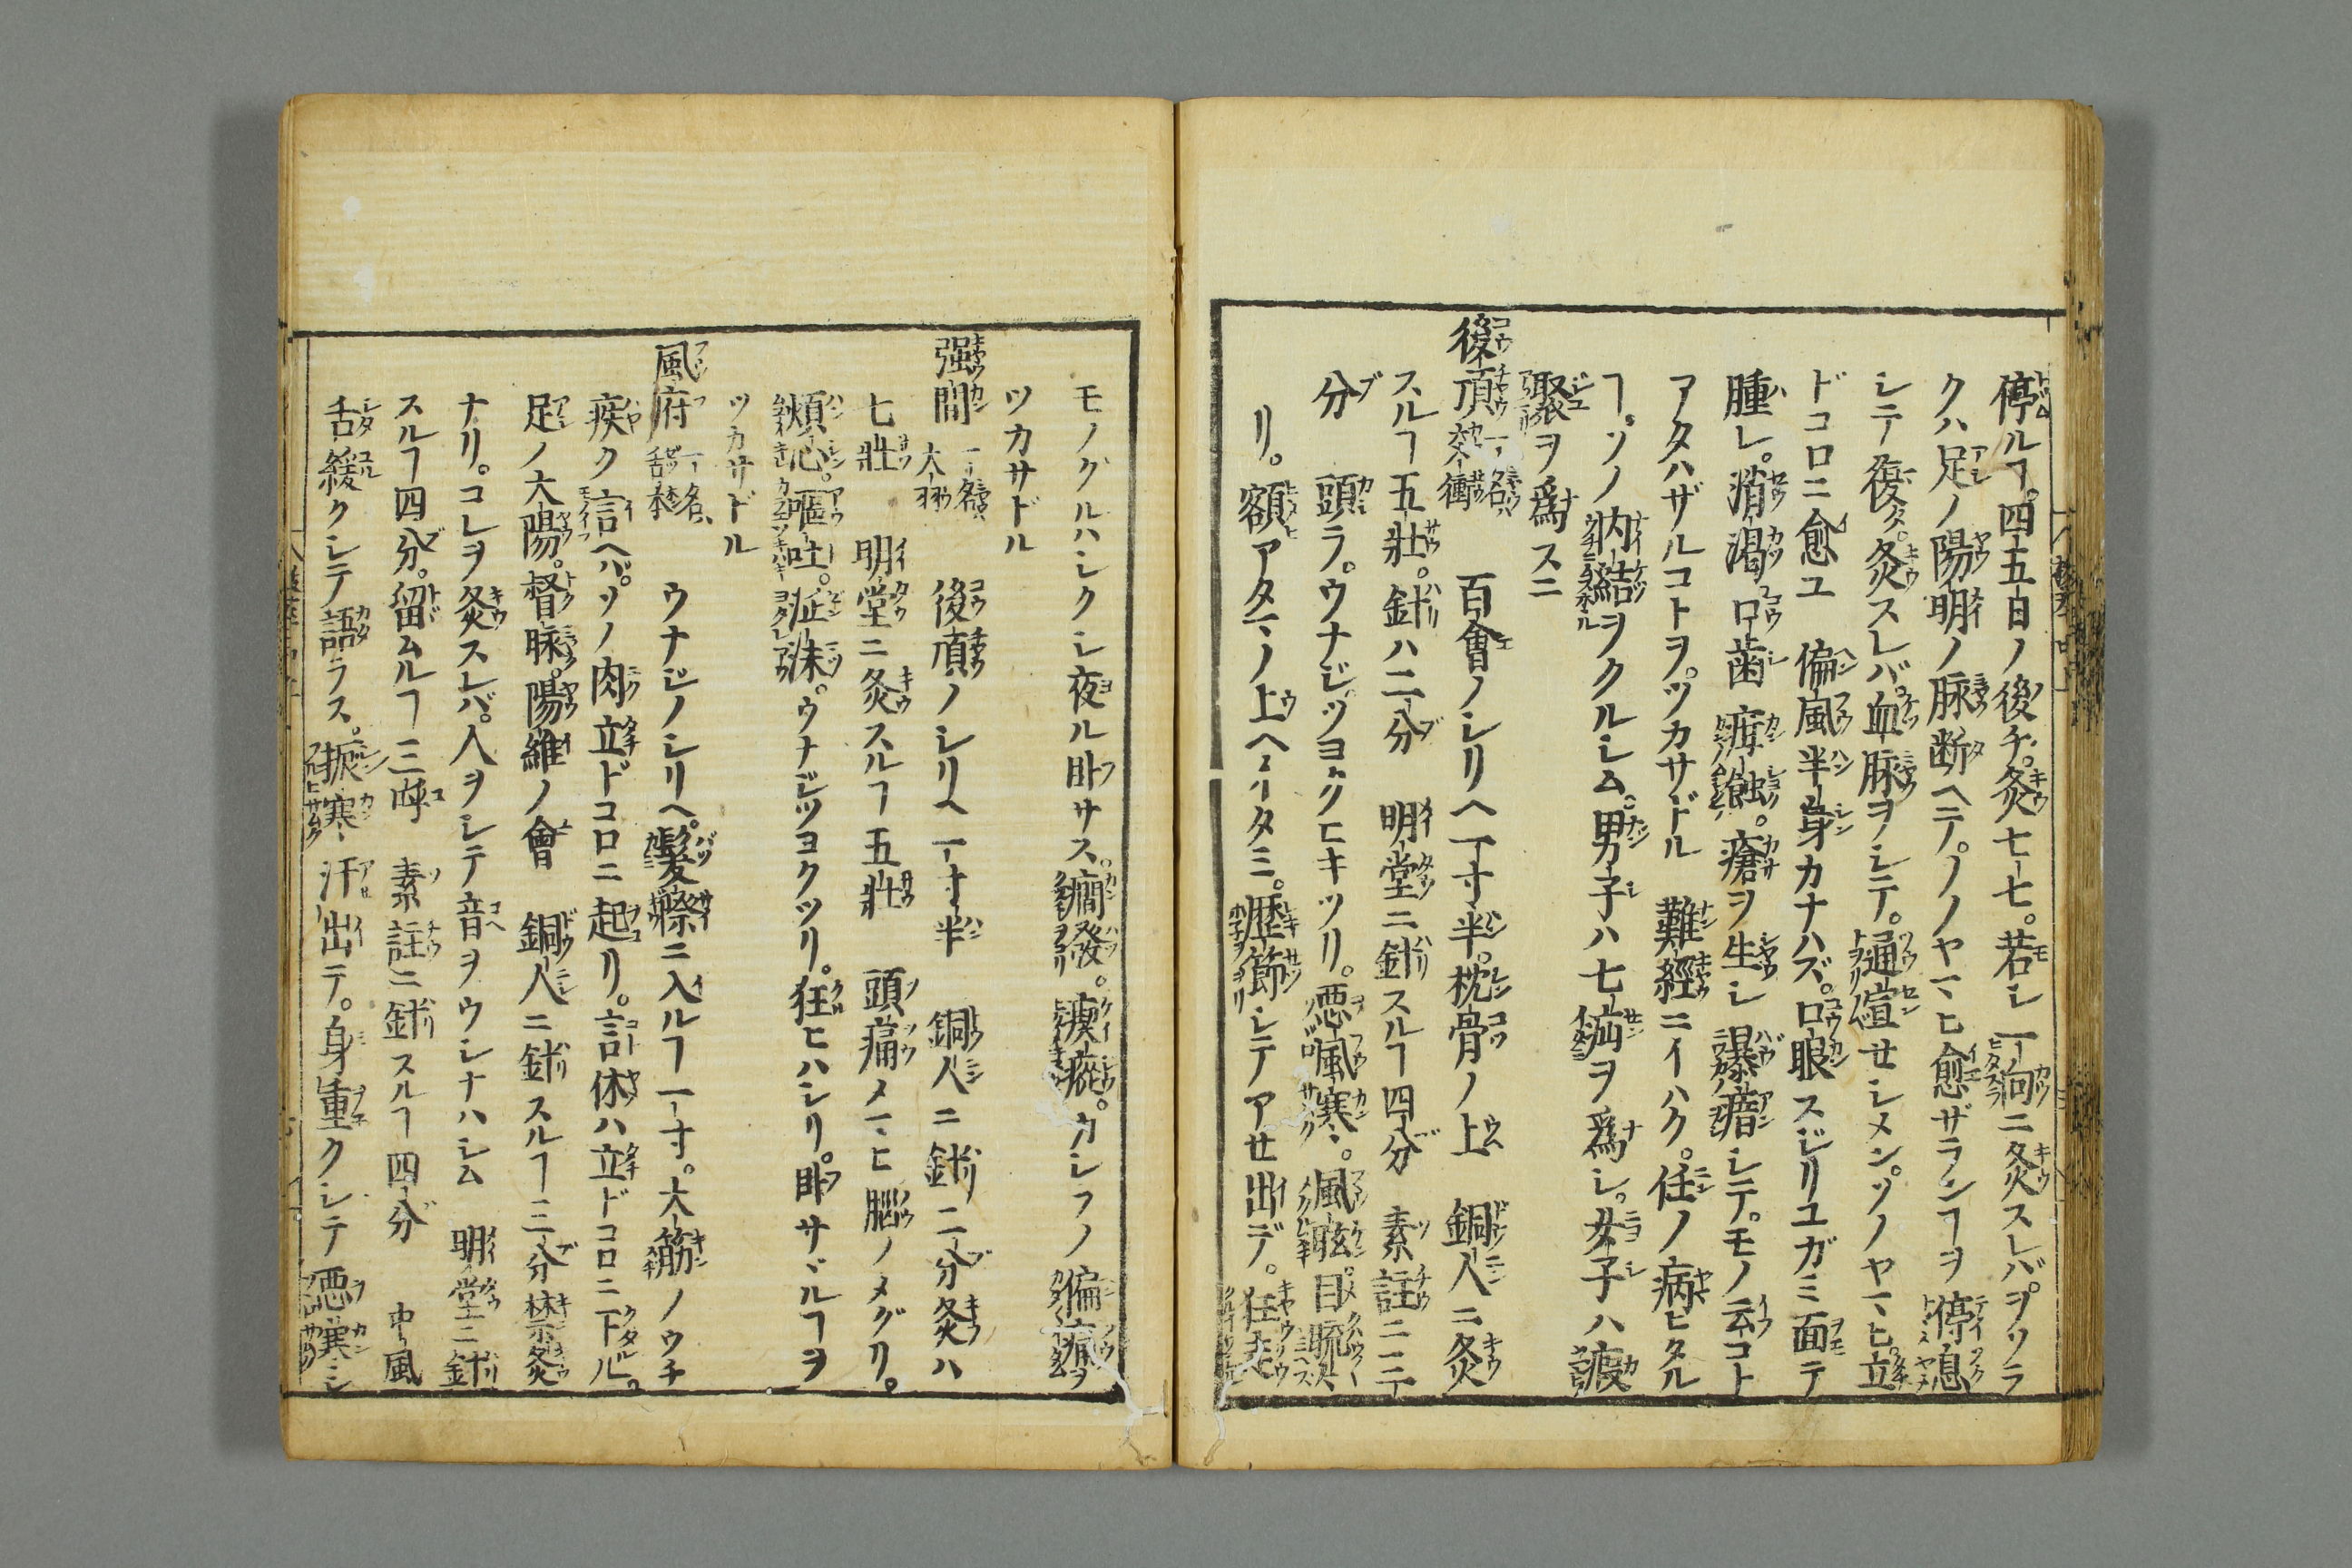 停ルヿ。四五日ノ後チ。灸七七。若シ一向ニ灸スレバ。ヲソラ
クハ足ノ陽明ノ脉断ヘテ。ソノヤマヒ愈ザランヿヲ停息
シテ復タ。灸スレバ。血脉ヲシテ。通喧セシメン。ソノヤマヒ。立
ドコロニ愈ユ　偏風半身カナハズ。口眼スジリユガミ面テ
腫レ。消渇口歯疳蝕。瘡ヲ生シ暴瘖シテ。モノ云コト
アタハザルコトヲ。ツカサドル　難經ニイハク。任ノ病ヒタル
ヿ。ソノ内結ヲクルシム。男子ハ七疝ヲ爲シ。女子ハ瘕
聚ヲ爲スニ
後頂　一名ハ交衝　百會ノシリヘ一寸半。枕骨ノ上　銅人ニ灸
スルヿ五壯。針ハ二分　明堂ニ針スルヿ四分　素註ニ三
分　頭ラ。ウナジ。ツヨクヒキツリ。悪風寒。風眩。目䀮々
リ。額アタマノ上ヘイタミ。歴節シテアセ出デ。狂走
モノグルハシクシ夜ル卧サス。癇發。瘈瘲。カシラノ偏痛ヲ
ツカサドル
强間　一名ハ大羽　後頂ノシリヘ一寸半　銅人ニ針二分灸ハ
七壯　明堂ニ灸スルヿ五壯　頭痛メマヒ腦ノメグリ。
煩心。嘔吐。涎沫。ウナジツヨクツリ。狂ヒハシリ。卧サヾルヿヲ
ツカサドル
風府　一名ハ舌本　ウナジノシリヘ。髮際ニ入ルヿ一寸。大筋ノウチ
疾ク言ヘバ。ソノ肉立ドコロニ起リ。言休ハ立ドコロニ下ル。
足ノ大陽。督脉。陽維ノ會　銅人ニ針スルヿ三分禁灸
ナリ。コレヲ灸スレバ。人ヲシテ音ヲウシナハシム　明堂ニ針
スルヿ四分。留ムルヿ三呼　素註ニ針スルヿ四分　中風
舌緩クシテ語ラス。振寒汗出テ。身重クシテ悪寒シ